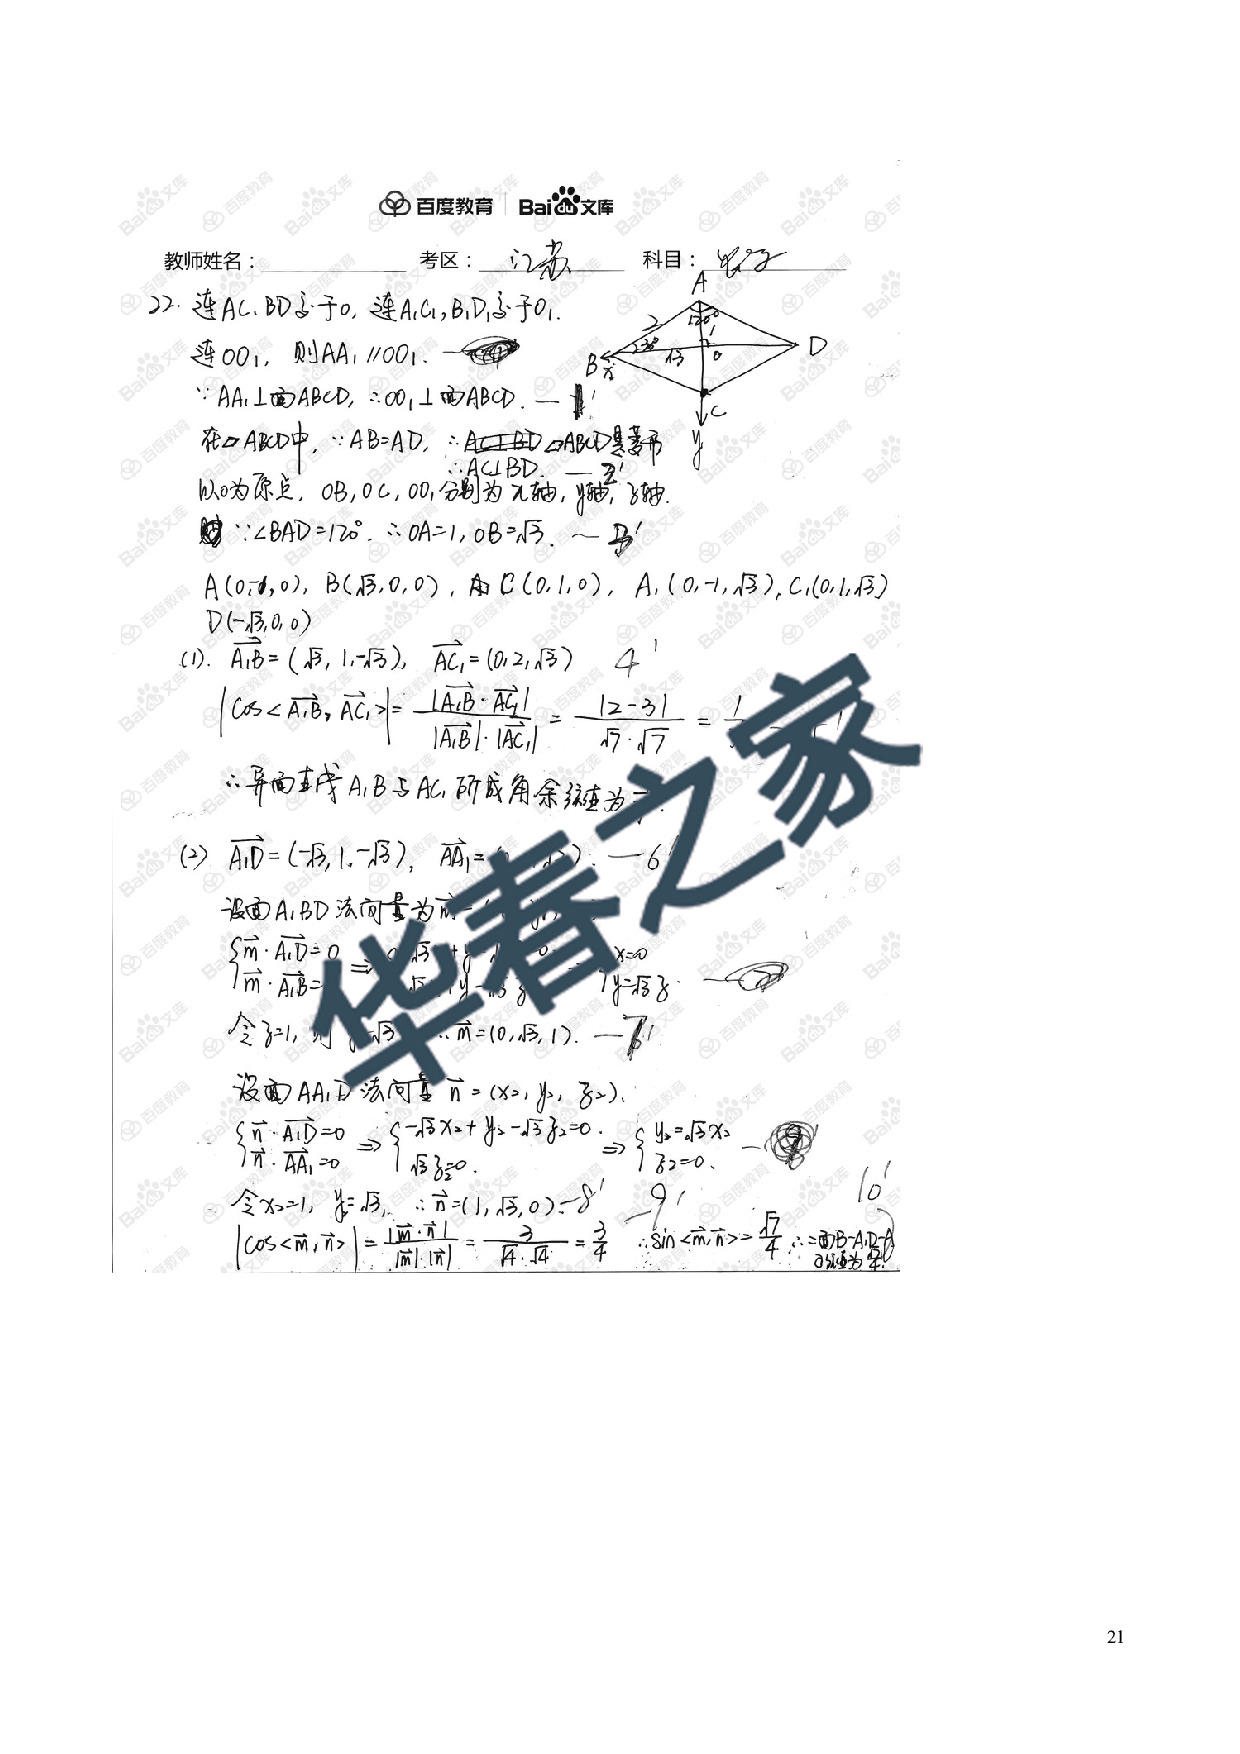 百度教育 | Bai文库
教师姓名： 考区：江苏 科目：数学
22. 连AC、BD交于O, 连A₁C₁, B₁D₁交于O₁.
连OO₁, 则AA₁∥OO₁.
∵AA₁⊥面ABCD, ∴OO₁⊥面ABCD. — 1'
在▱ABCD中, ∵AB=AD, ∴▱ABCD是菱形
∴AC⊥BD. — 2'
以O为原点, OB, OC, OO₁分别为x轴, y轴, z轴.
∵∠BAD=120°. ∴OA=1, OB=√3. — 3'
A(0,-1,0), B(√3,0,0), C(0,1,0), A₁(0,-1,√3), C₁(0,1,√3)
D(-√3,0,0)
(1). A₁B=(√3,1,-√3), AC₁=(0,2,√3) 4'
|cos<A₁B, AC₁>|=|A₁B·AC₁|/|A₁B|·|AC₁| = |2-3|/√7·√7 = 1/
∴异面直线A₁B与AC₁所成角余弦值为
(2) A₁D=(-√3,1,-√3), AA₁=( — 6'
设面A₁BD法向量为m
{m·A₁D=0
m·A₁B= ⇒ x=0
y=√3z.
令z=1, 则 √3 ∴m=(0,√3,1). — 7'
设面AA₁D法向量n=(x₂, y₂, z₂).
{n·A₁D=0
n·AA₁=0 ⇒ {-√3x₂+y₂-√3z₂=0.
√3z₂=0. ⇒ {y₂=√3x₂
z₂=0.
令x₂=1, y₂=√3, ∴n=(1,√3,0). — 8' — 9' 10'
|cos<m,n>|=|m·n|/|m|·|n| = 3/√4·√4 = 3/4 ∴sin<m,n>=√7/4 ∴二面B-A₁D-A
正弦值为√7/4.
A
120°
2
1
B
30°
√3
O
D
x
C
y
华春之家
21